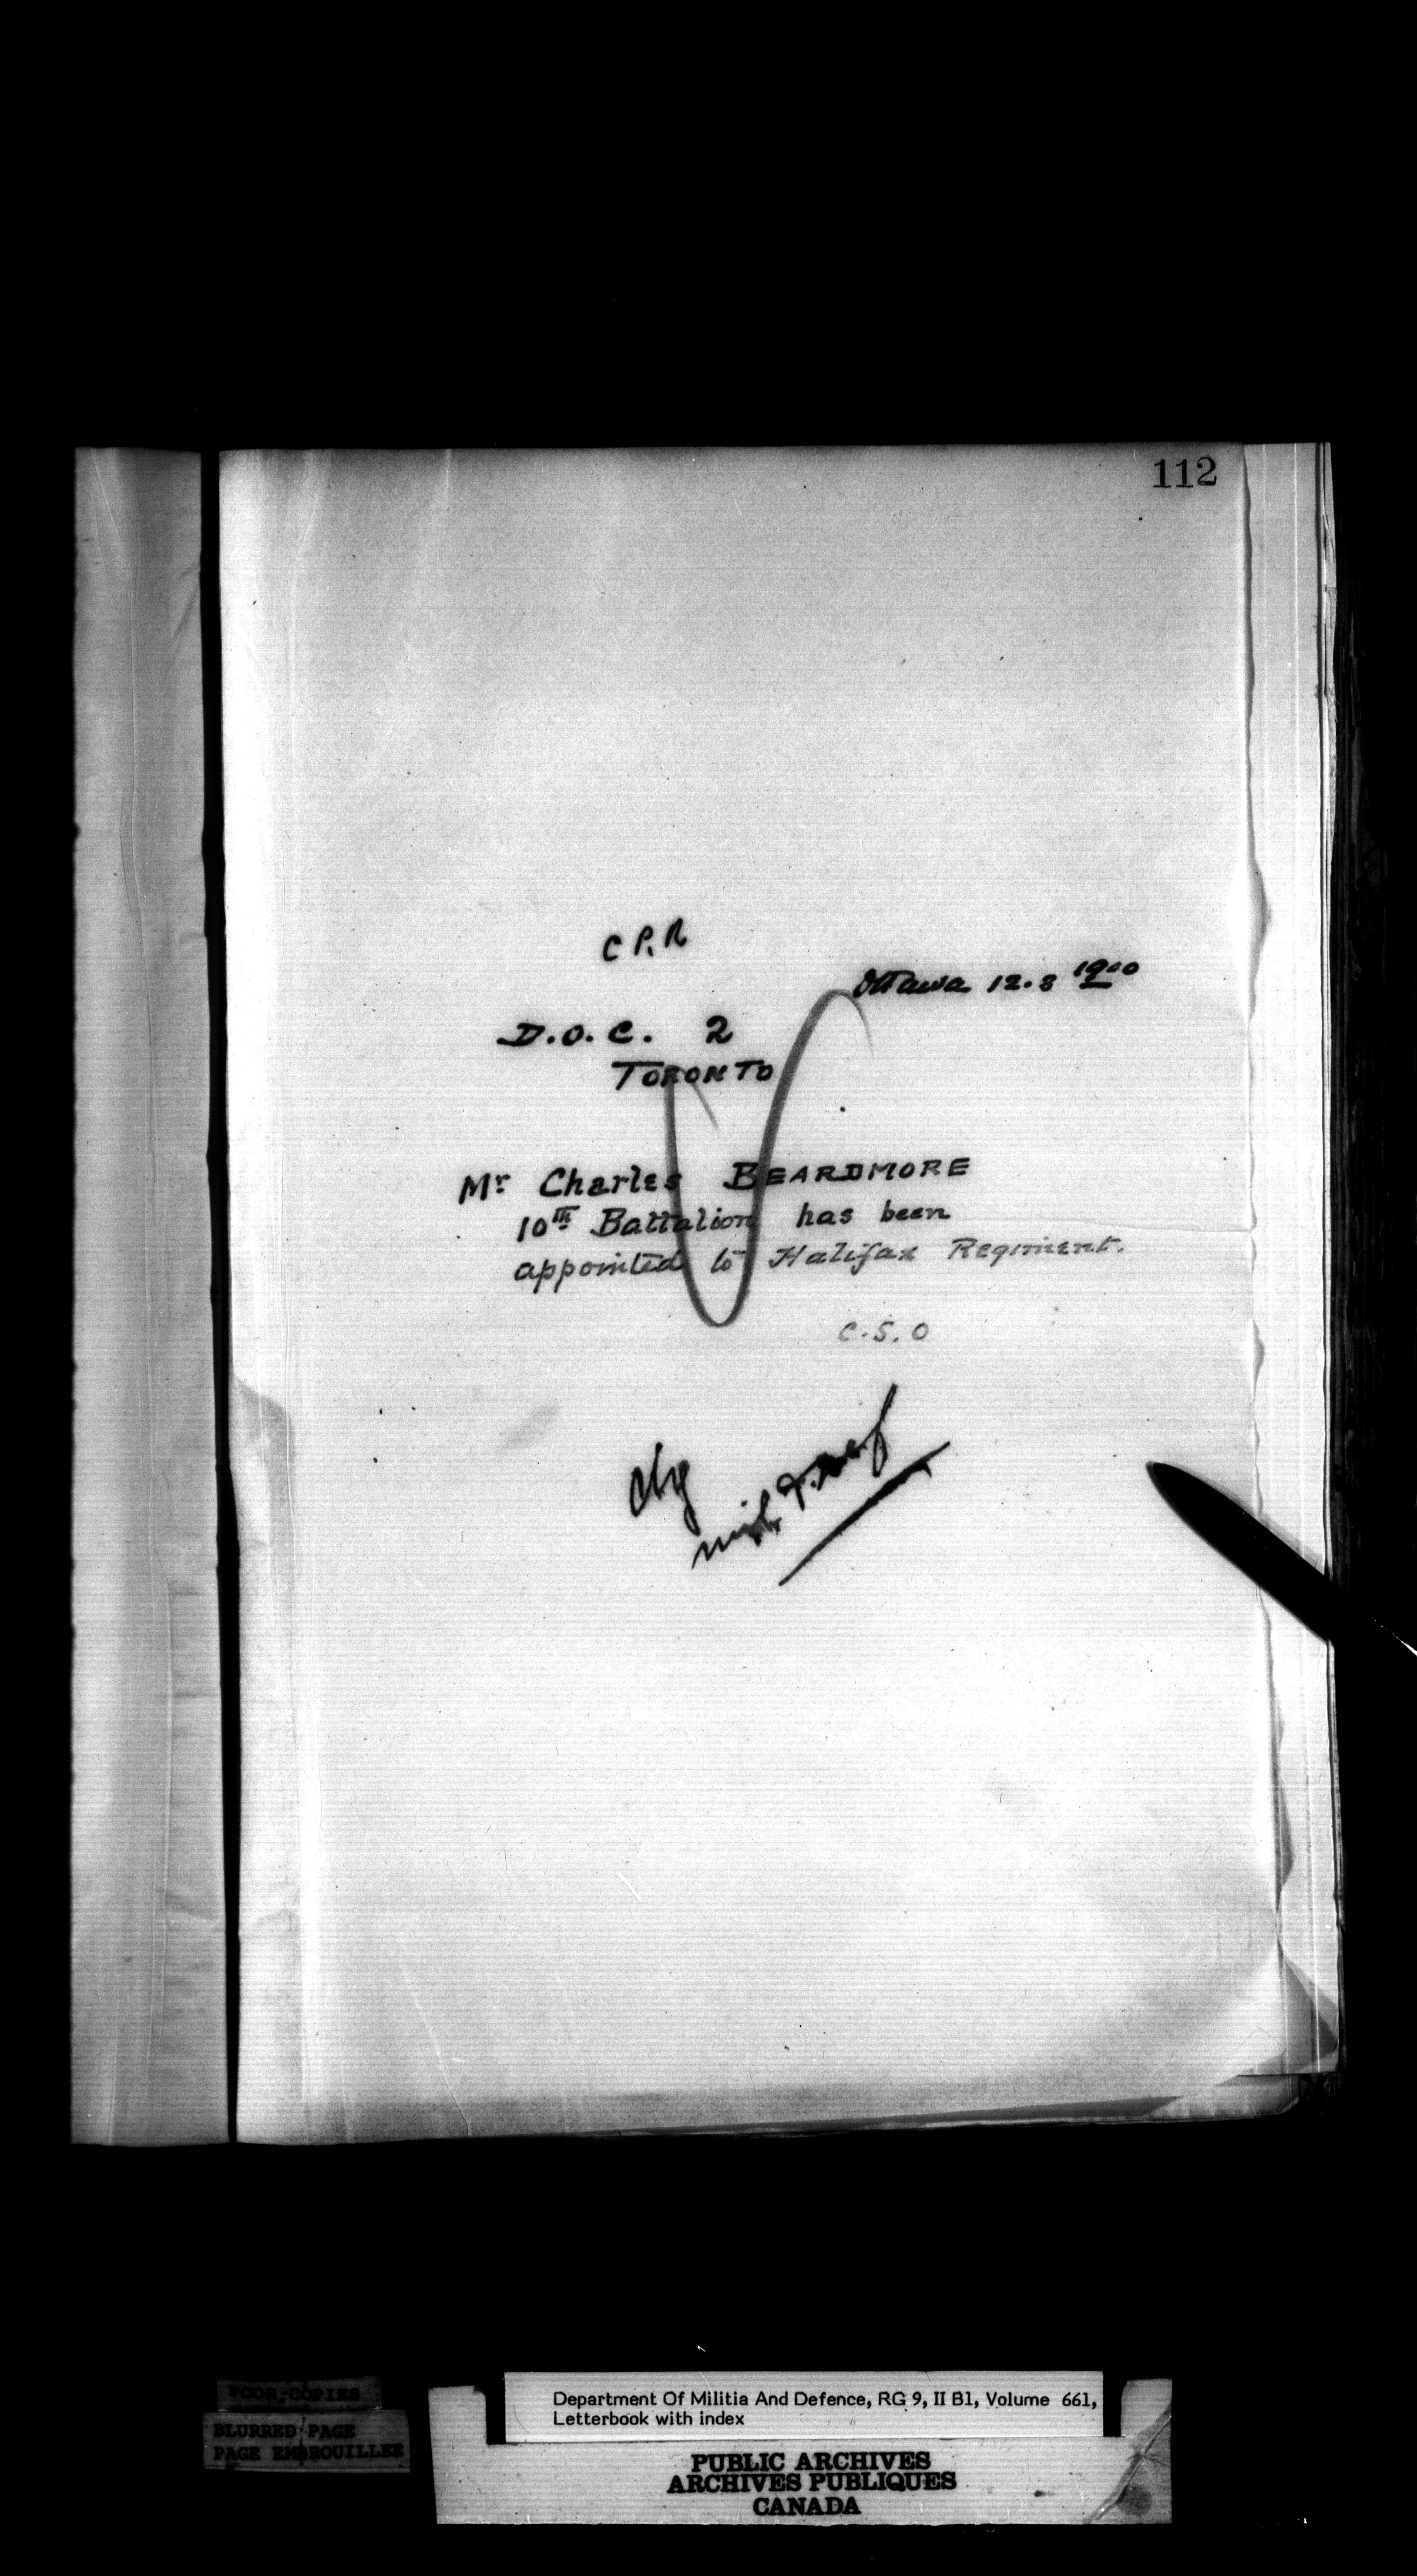 112
C P. R
Ottawa 12.3 1900
D.O.C. 2
TORONTO
Mr Charles BEARDMORE
10th Battalion has been
appointed to Halifax Regiment.
C.S.O
Chg
Mil & Def
POOR COPIES
BLURRED PAGE
PAGE EMBROUILLEE
Department Of Militia And Defence, RG 9, II B1, Volume 661,
Letterbook with index
PUBLIC ARCHIVES
ARCHIVES PUBLIQUES
CANADA